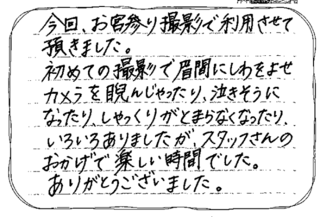 今回、お宮参り撮影で利用させて
頂きました。
初めての撮影で眉間にしわをよせ
カメラを睨んじゃったり、泣きそうに
なったり、しゃっくりがとまらなくなったり、
いろいろありましたが、スタッフさんの
おかげで楽しい時間でした。
ありがとうございました。